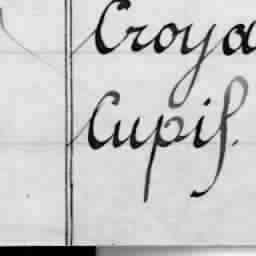 Croya
Cupis.